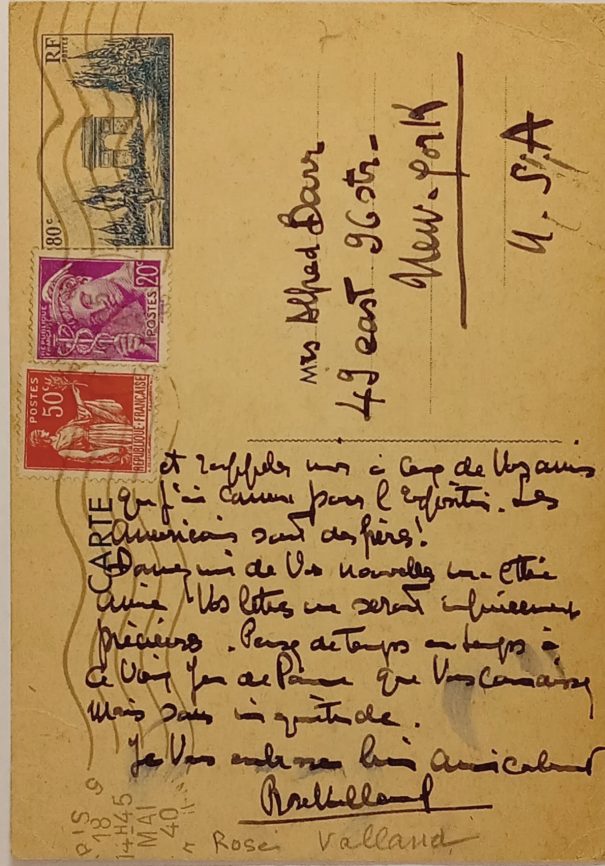 RF
POSTES
80c
REPUBLIQUE FRANÇAISE
20c
POSTES
POSTES
50c
REPUBLIQUE FRANÇAISE
CARTE
Mrs Alfred Barr
49 east 96 str.
New-York
U.S.A
et rappelez moi à ceux de Vos amis
que j'ai connu pour l'Exposition. Les
Américains sont des frères!
Donnez moi de Vos nouvelles
amie Vos lettres me seront infiniment
précieuses. Pensez de temps en temps à
ce Vieux Jeu de Paume que Vous connaissez
mais sans inquiétude.
Je Vous embrasse bien amicalement
Rose Valland
PARIS 9
18
14H45
MAI
40
Rose Valland